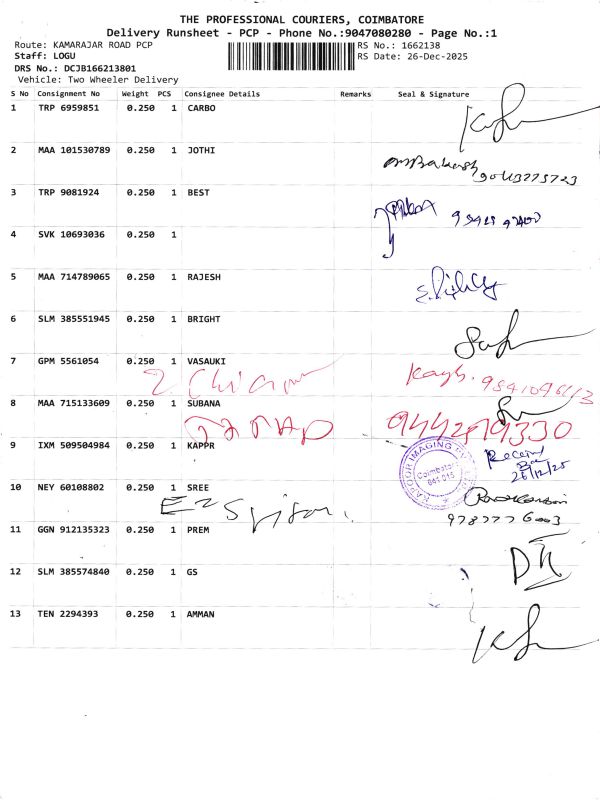 THE PROFESSIONAL COURIERS, COIMBATORE
Delivery Runsheet - PCP - Phone No.:9047080280 - Page No.:1
Route: KAMARAJAR ROAD PCP RS No.: 1662138
Staff: LOGU RS Date: 26-Dec-2025
DRS No.: DCJB166213801
Vehicle: Two Wheeler Delivery
S No Consignment No Weight PCS Consignee Details Remarks Seal & Signature
1 TRP 6959851 0.250 1 CARBO
2 MAA 101530789 0.250 1 JOTHI
3 TRP 9081924 0.250 1 BEST
4 SVK 10693036 0.250 1
5 MAA 714789065 0.250 1 RAJESH
6 SLM 385551945 0.250 1 BRIGHT
7 GPM 5561054 0.250 1 VASAUKI
8 MAA 715133609 0.250 1 SUBANA
9442419330
9 IXM 509504984 0.250 1 KAPPR
KAPOOR IMAGING
Coimbatore
641 015
Received
26/12/25
10 NEY 60108802 0.250 1 SREE
9787776003
11 GGN 912135323 0.250 1 PREM
12 SLM 385574840 0.250 1 GS
13 TEN 2294393 0.250 1 AMMAN